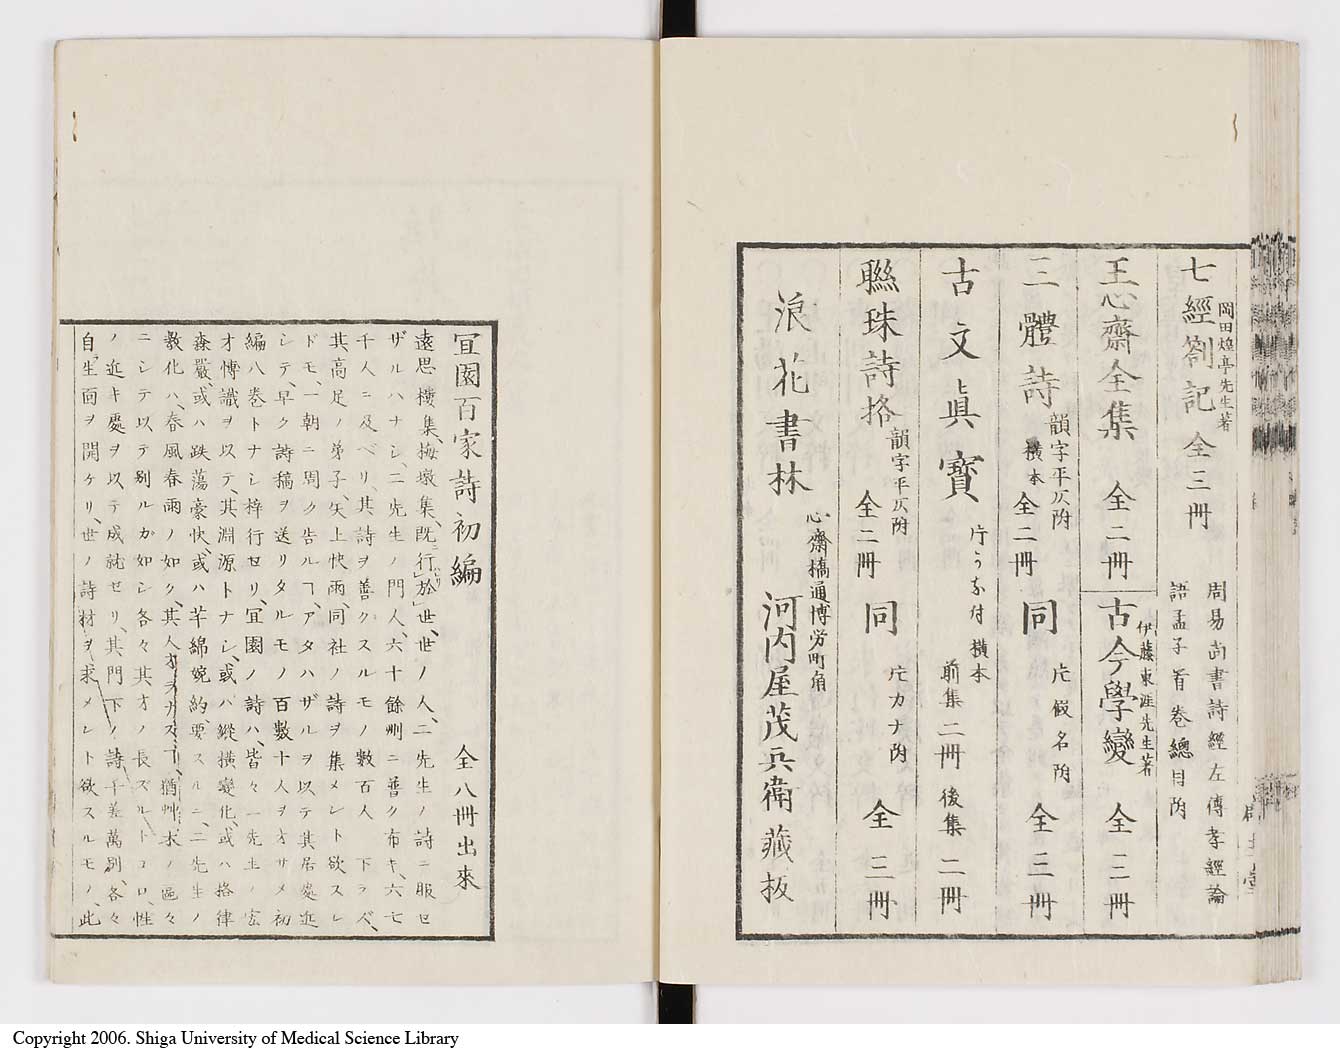 七經劄記 全三冊
岡田煌亭先生著
周易尚書詩經左傳孝經論
語孟子首卷總目附
王心齋全集 全二冊
古今學變 全三冊
伊藤東涯先生著
三體詩 韻字平仄附 橫本 全二冊
同 片假名附 全三冊
古文眞寶 片うな付 橫本 前集二冊 後集二冊
聯珠詩格 韻字平仄附 全二冊
同 片カナ附 全三冊
浪花書林 心齋橋通博労町角 河内屋茂兵衛藏板
宜園百家詩初編 全八冊出來
遠思樓集、梅墩集、既行於世、世ノ人、二先生ノ詩ニ服セ
ザルハナシ、二先生ノ門人、六十餘州ニ普ク布キ、六七
千人ニ及ベリ、其詩ヲ善クスルモノ數百人 下ラベ、
其高足ノ弟子、矢上快雨、同社ノ詩ヲ集メレト欲スレ
ドモ、一朝ニ周ク告ルヿ、アタハザルヲ以テ其居處近
シテ、早ク詩稿ヲ送リタルモノ百數十人ヲオサメ初
編八卷トナシ梓行セリ、宜園ノ詩ハ、皆々一先生ノ宏
才博識ヲ以テ、其淵源トナシ、或ハ縱横變化、或ハ格律
森嚴、或ハ跌蕩豪快、或ハ芊綿婉約、要スルニ、二先生ノ
敎化ハ、春風春雨ノ如ク、其人才ヲナスヿ、猶艸木ノ區々
ニシテ以テ別ルカ如シ各々其才ノ長ズルトコロ、性
ノ近キ處ヲ以テ成就セリ、其門下ノ詩千差萬別、各々
自生面ヲ開ケリ、世ノ詩材ヲ求メレト欲スルモノ、此
Copyright 2006. Shiga University of Medical Science Library